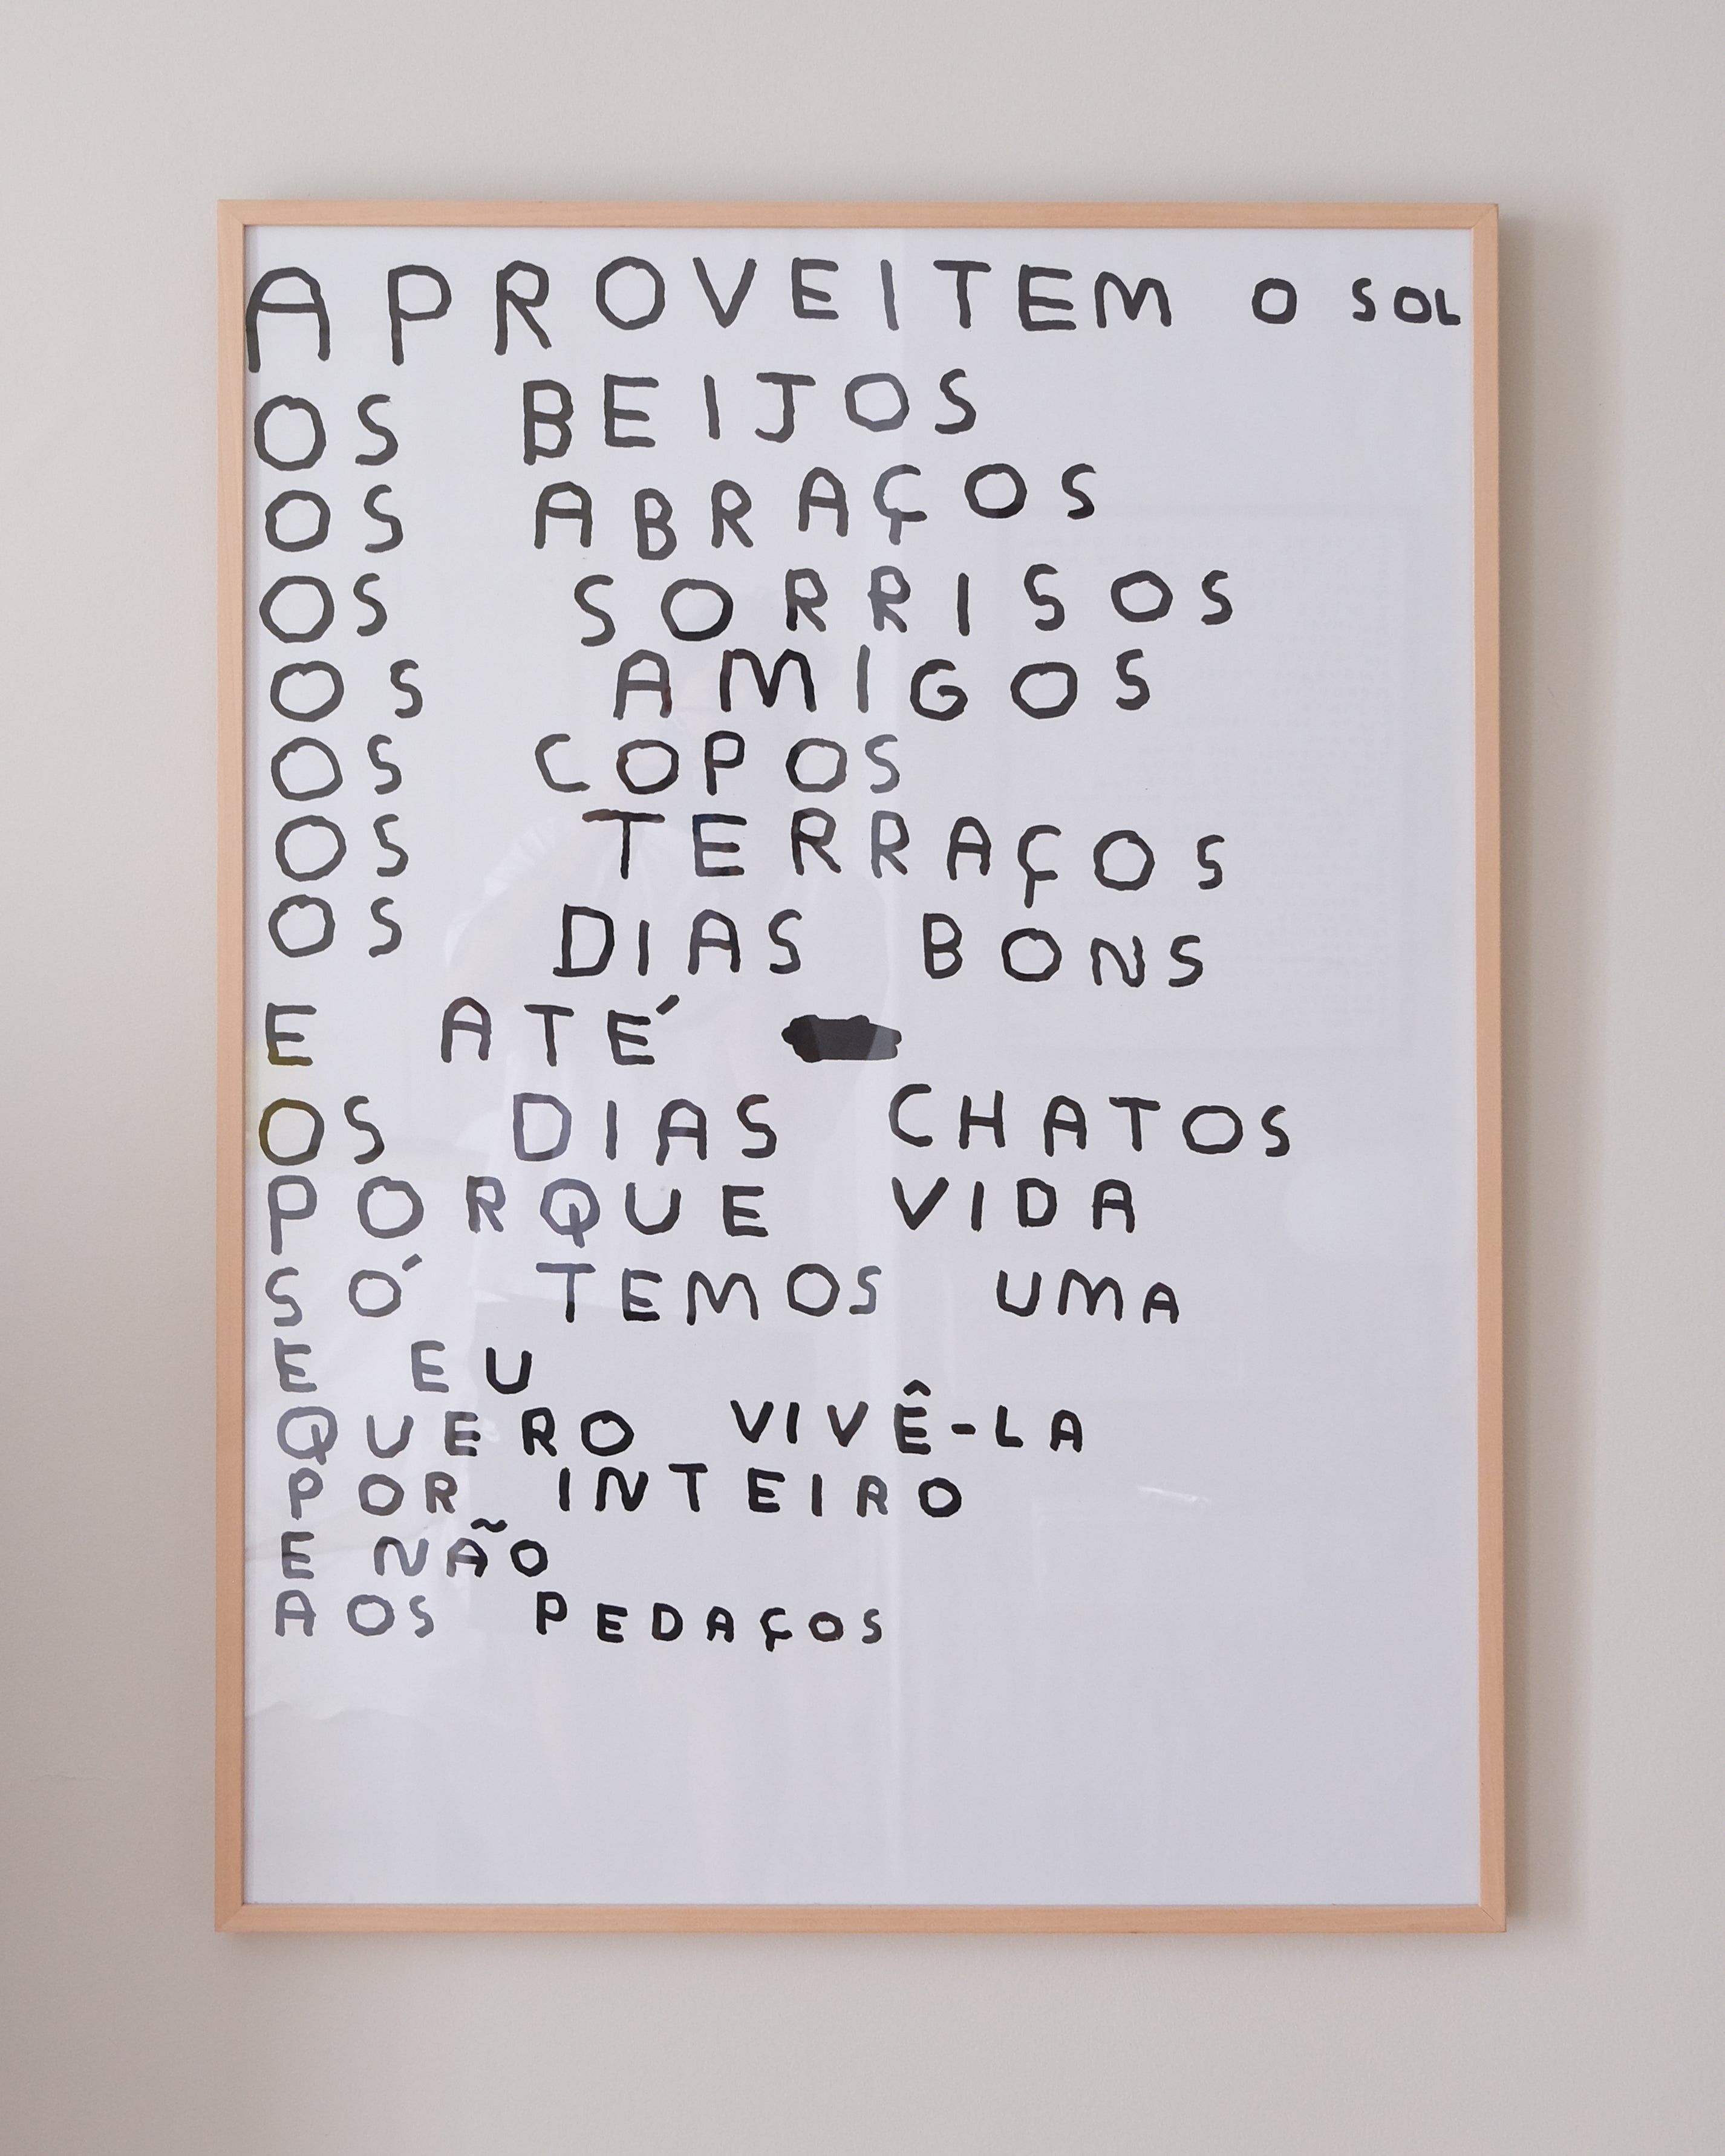 APROVEITEM O SOL
OS BEIJOS
OS ABRAÇOS
OS SORRISOS
OS AMIGOS
OS COPOS
OS TERRAÇOS
OS DIAS BONS
E ATÉ
OS DIAS CHATOS
PORQUE VIDA
SÓ TEMOS UMA
E EU
QUERO VIVÊ-LA
POR INTEIRO
E NÃO
AOS PEDAÇOS